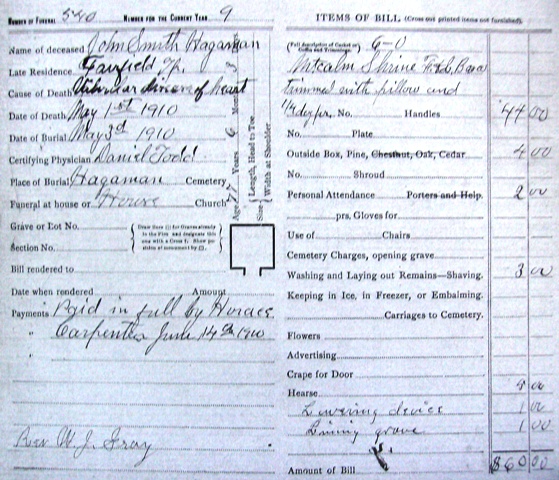 NUMBER OF FUNERAL 540 NUMBER FOR THE CURRENT YEAR 9
Name of deceased John Smith Hagaman
Late Residence Fairfield Tp.
Cause of Death Valvular disease of heart
Date of Death May 1st 1910
Date of Burial May 3d 1910
Certifying Physician Daniel Todd
Place of Burial Hagaman Cemetery
Funeral at house or House Church
Age 77 Years 6 Months
Size { Length, Head to Toe
Width at Shoulder
Grave or Lot No.
Section No.
Bill rendered to
Date when rendered Amount
Payments Paid in full by Horace
" Carpenter June 14th 1910
"
Rev W. J. Gray
ITEMS OF BILL (Cross out printed items not furnished)
6-0
Metcalm Shrine
Trimmed with pillow and
No. Handles 44 00
No. Plate
Outside Box, Pine, Chestnut, Oak, Cedar 4 00
No. Shroud
Personal Attendance Porters and Help. 2 00
prs, Gloves for
Use of Chairs
Cemetery Charges, opening grave
Washing and Laying out Remains—Shaving. 3 00
Keeping in Ice, in Freezer, or Embalming.
Carriages to Cemetery.
Flowers
Advertising
Crape for Door
Hearse 00
Lowering device 1 00
Lining grave 1 00
Amount of Bill $60 00